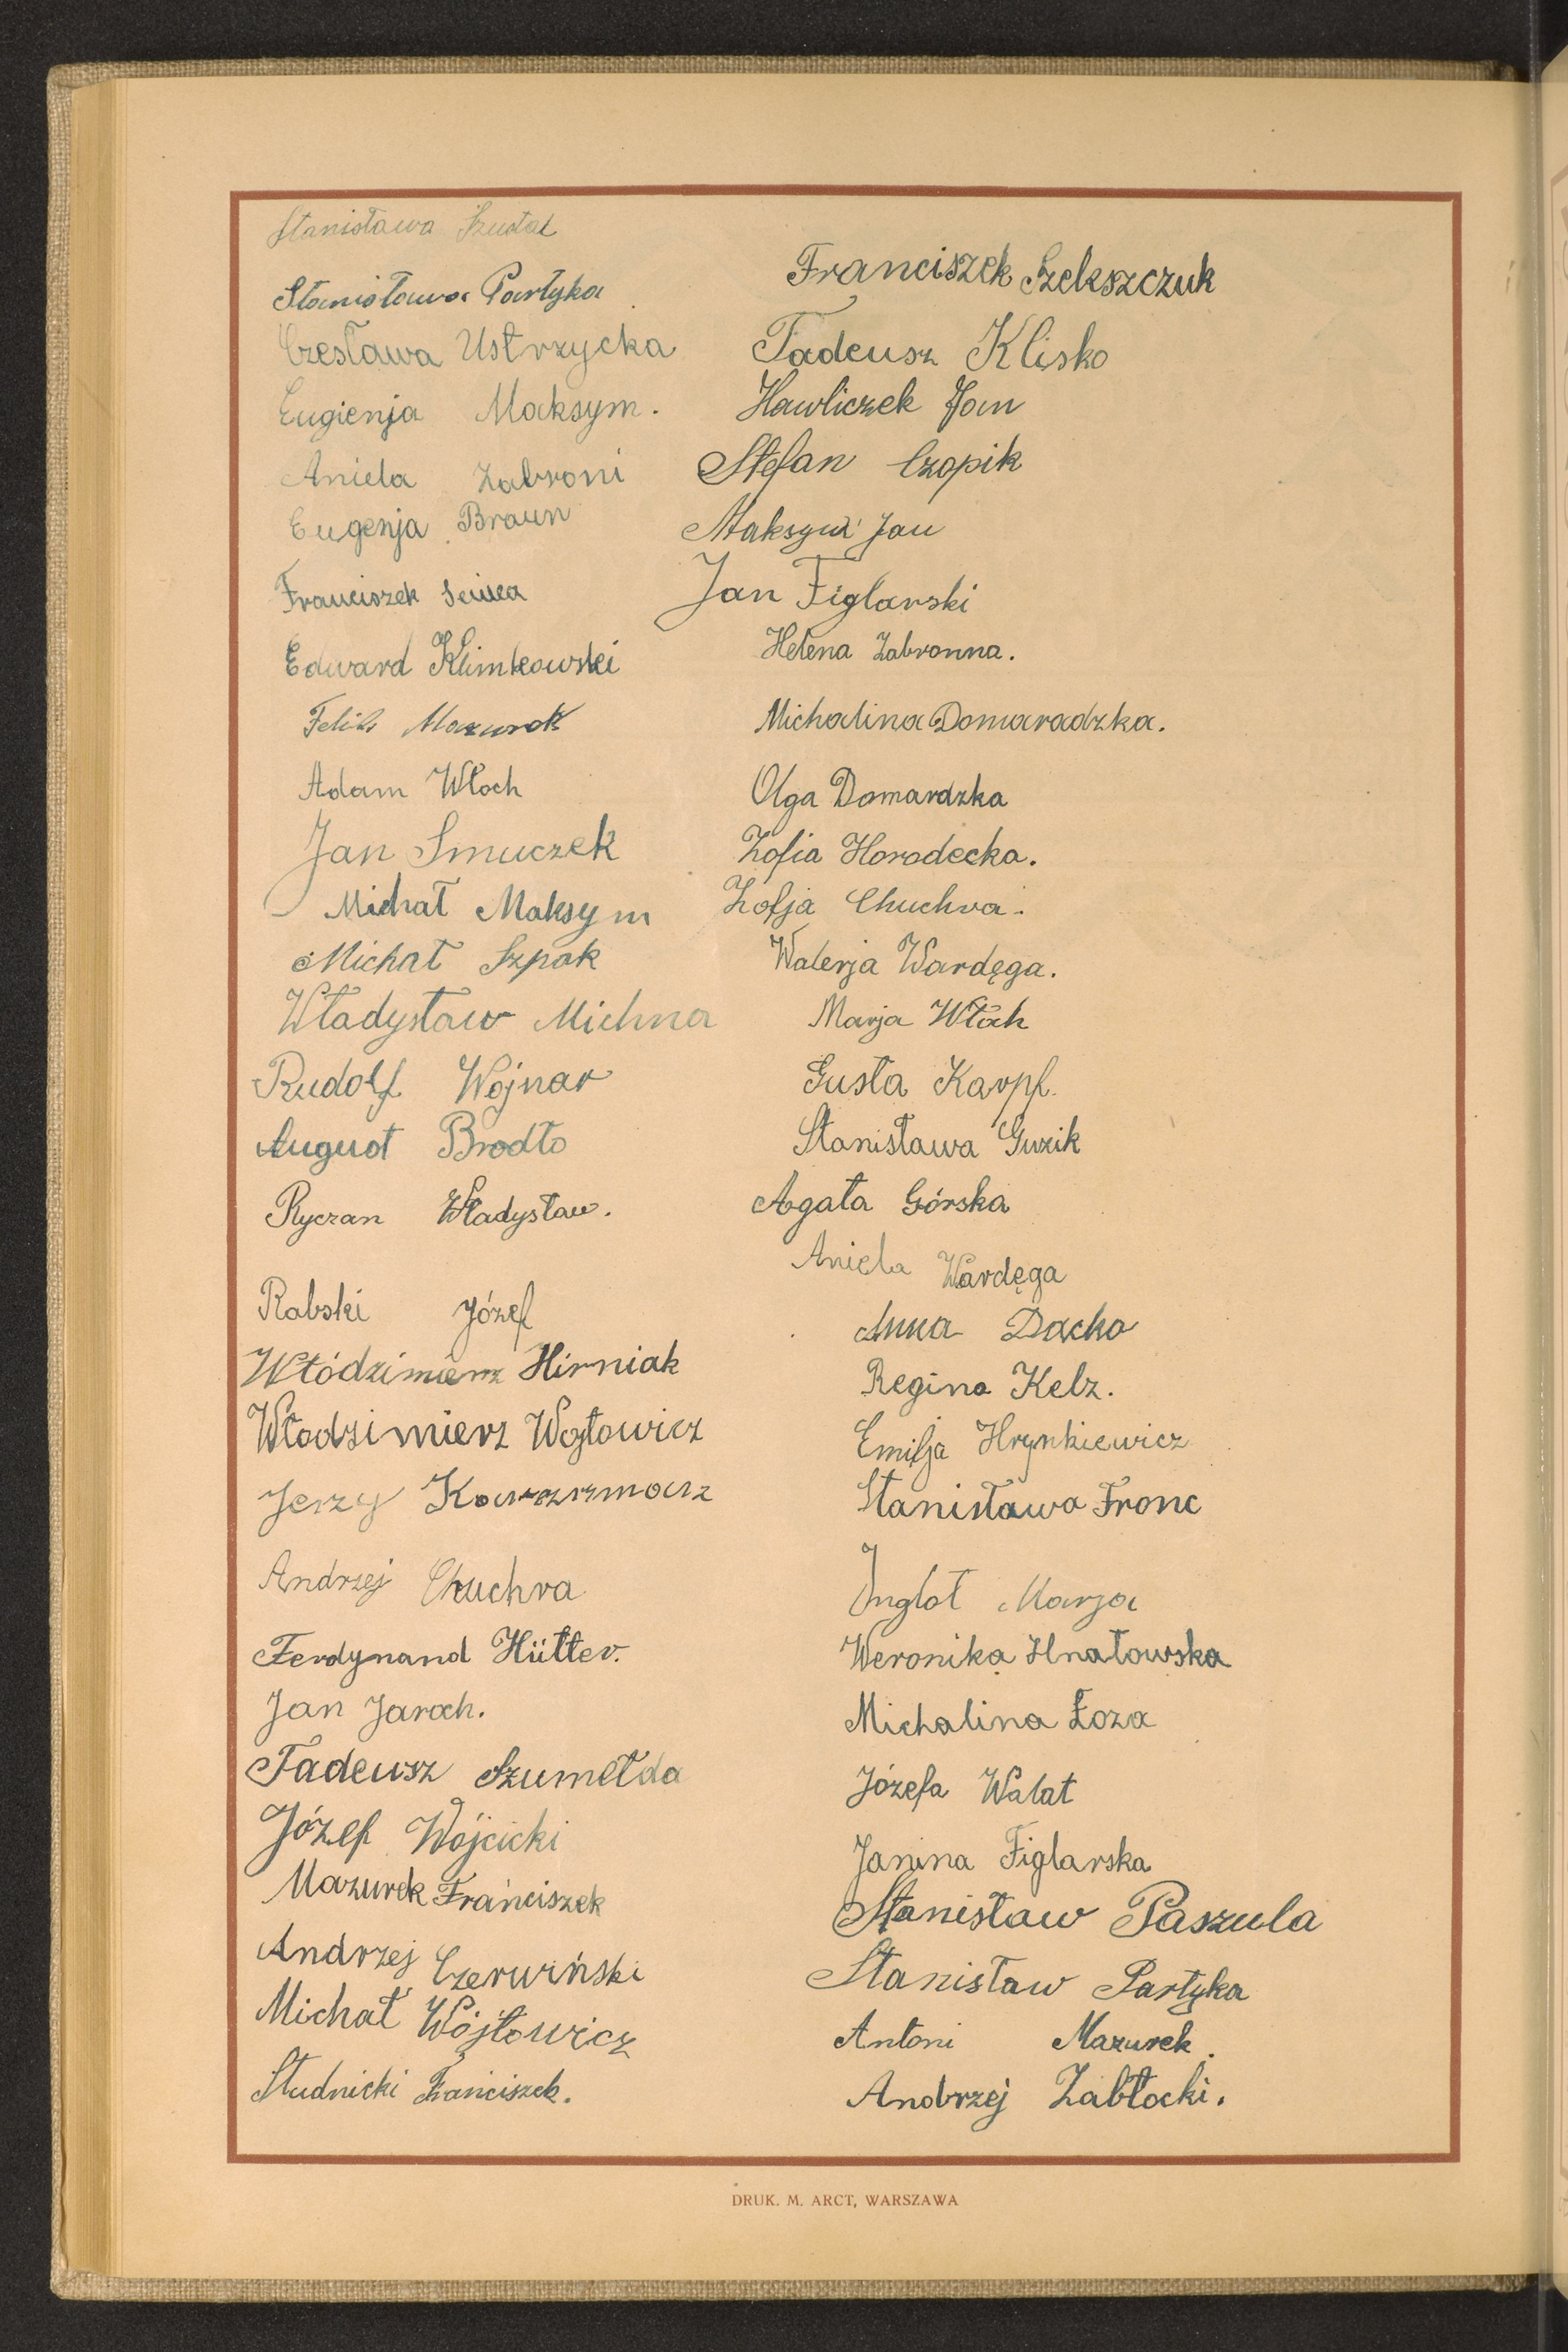 Stanisława Szustak
Stanisława Partyka
Czesława Ustrzycka
Eugienja Maksym.
Aniela Zabroni
Eugenja Braun
Franciszek
Edward Klimkowski
Feliks Mazurek
Adam Włoch
Jan Smuczek
Michał Maksym
Michał Szpak
Władysław Michna
Rudolf Wojnar
August Brodło
Ryczan Władysław.
Rabski Józef
Włódzimierz Hirniak
Włodzimierz Wojtowicz
Jerzy
Andrzej Chuchra
Ferdynand Hütter.
Jan Jaroch.
Tadeusz Szumełda
Józef Wójcicki
Mazurek Franciszek
Andrzej Czerwiński
Michał Wójtowicz
Studnicki Franciszek.
Franciszek Szelszczuk
Tadeusz Klisko
Hawliczek Jan
Stefan Czopik
Maksym Jan
Jan Figlarski
Helena Zabronna.
Michalina Domaradzka.
Olga Domardzka
Zofia Horodecka.
Zofja Chuchra.
Walerja Wardęga.
Marja Włoch
Gusta Karpf.
Stanisława Guzik
Agata Górska
Aniela Wardęga
Anna Dacko
Regina Kelz.
Emilja Hrynkiewicz
Stanisława Fronc
Inglot Marja
Weronika Hnatowska
Michalina Łoza
Józefa Walat
Janina Figlarska
Stanisław Paszula
Stanisław Partyka
Antoni Mazurek.
Andrzej Zabłocki.
DRUK. M. ARCT, WARSZAWA